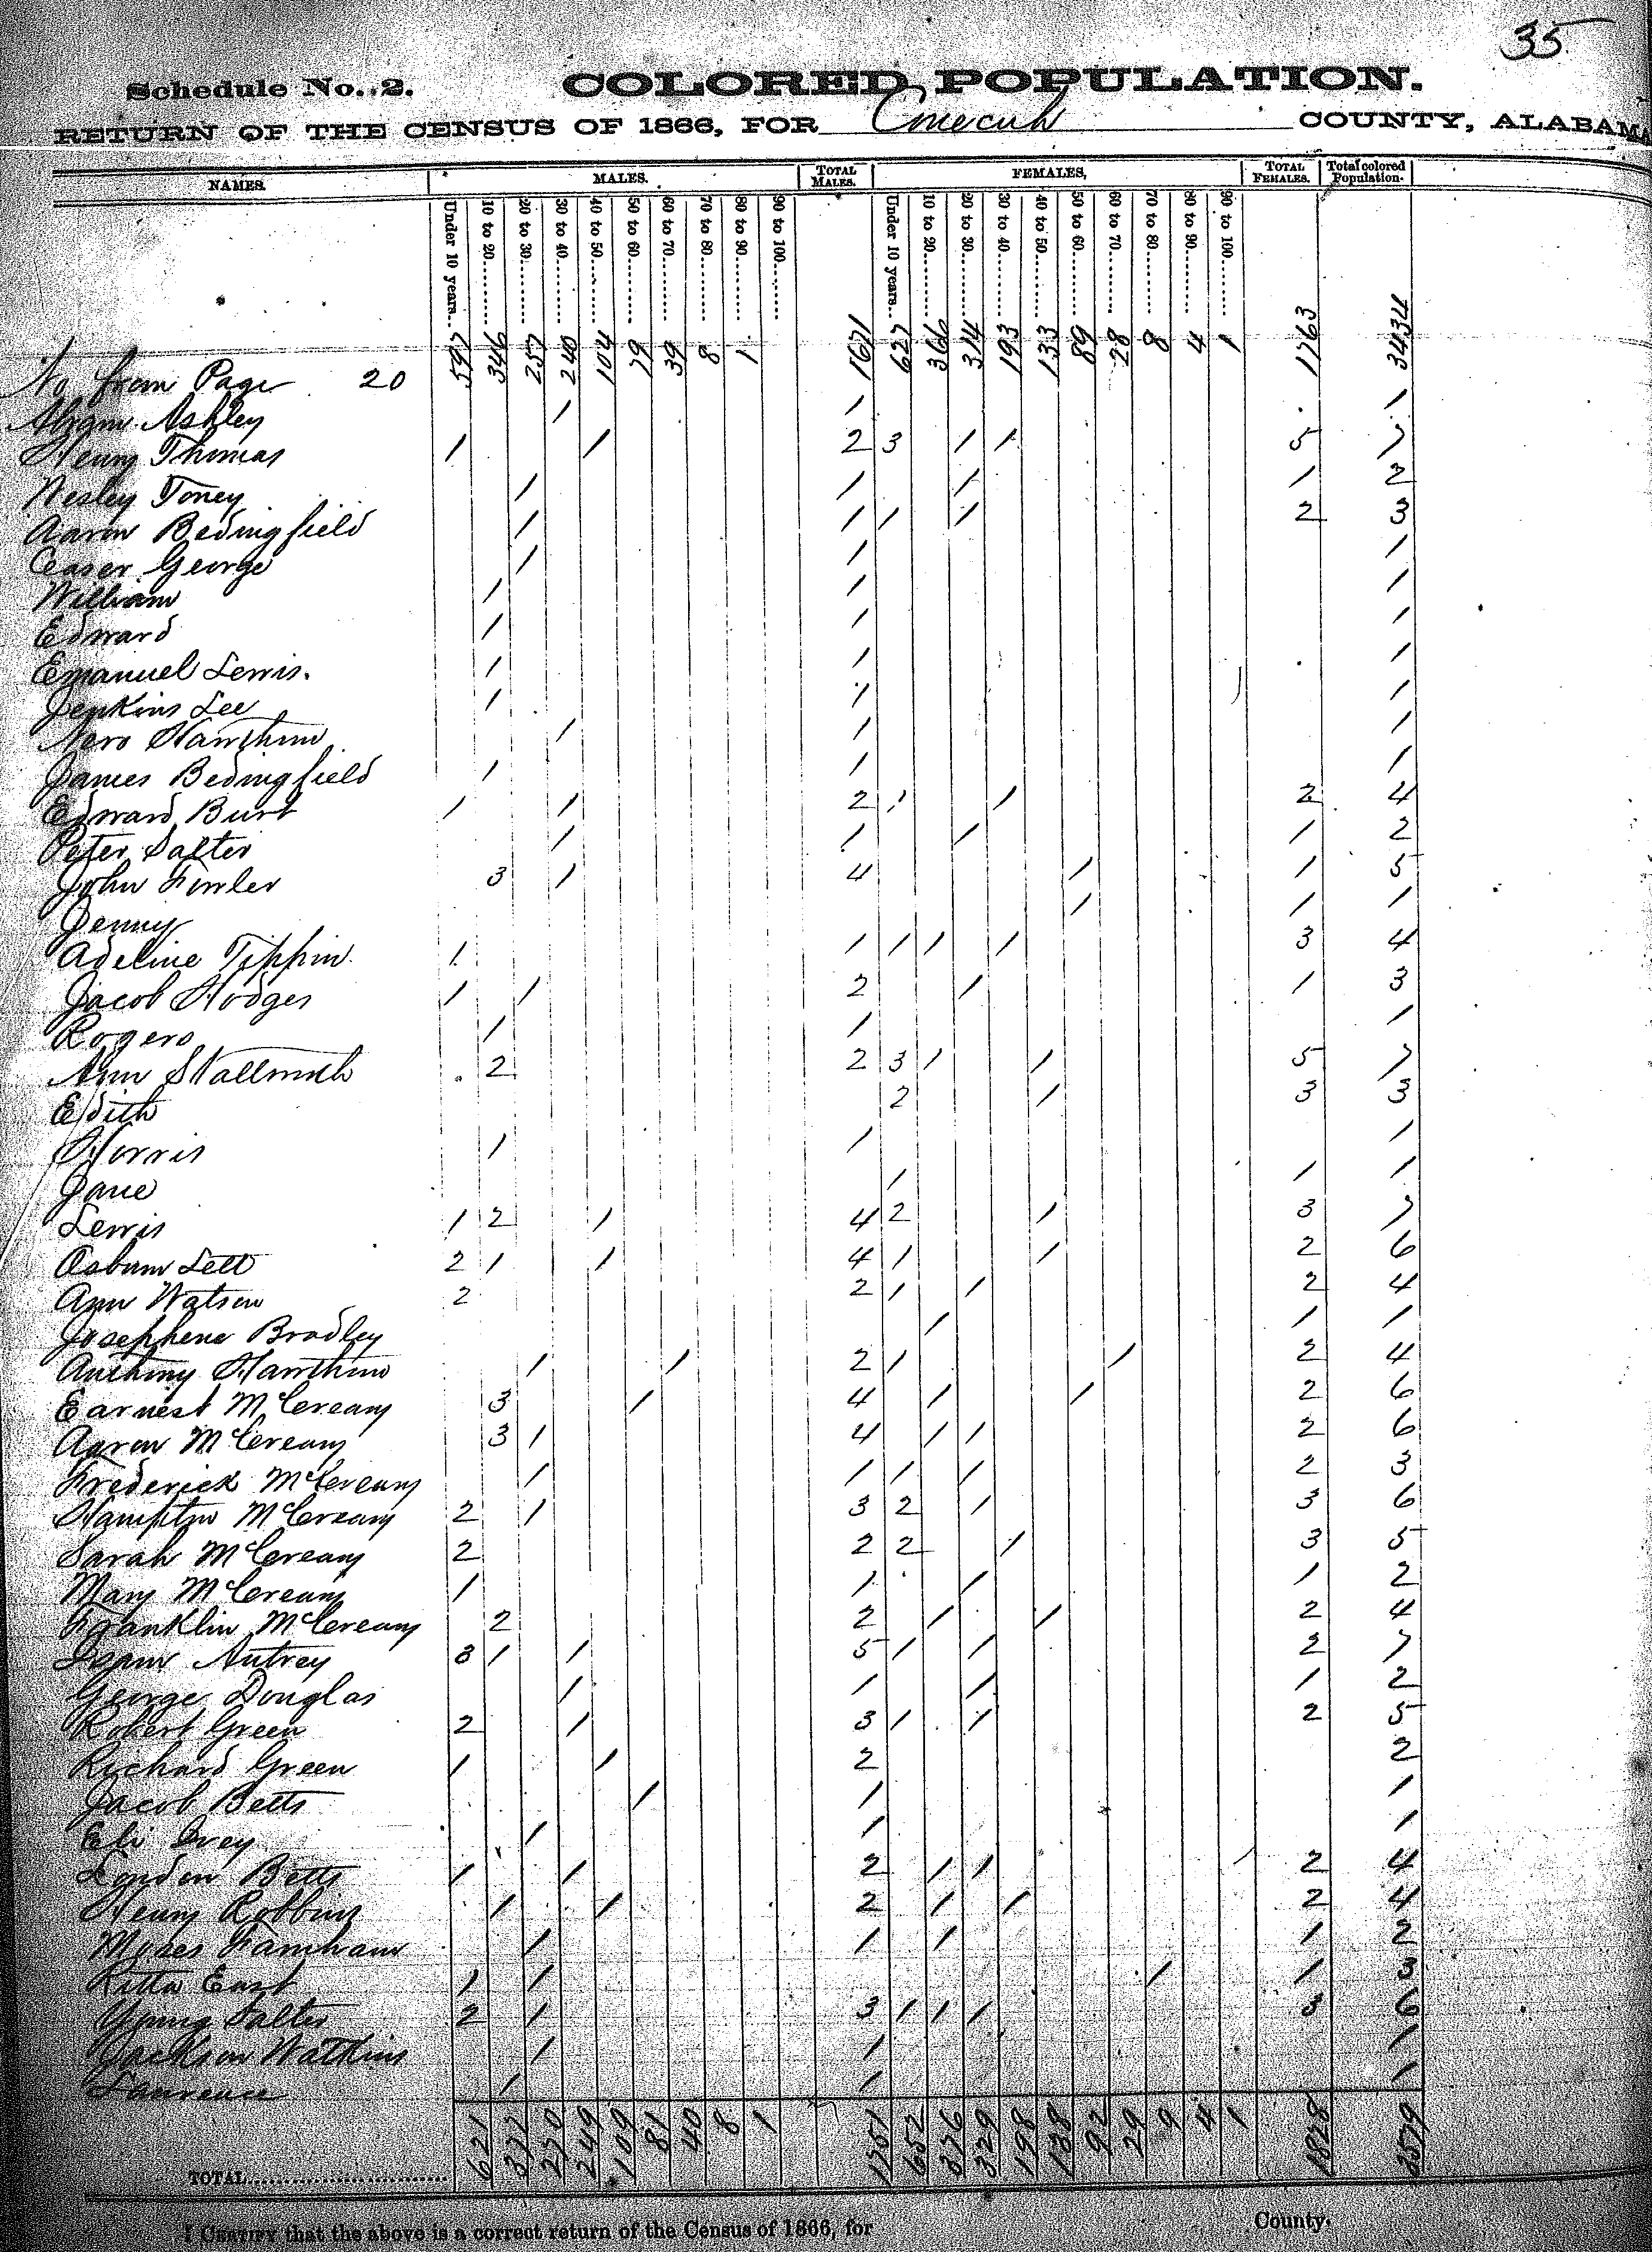 35
Schedule No. 2. COLORED POPULATION.
RETURN OF THE CENSUS OF 1866, FOR Conecuh COUNTY, ALABAMA
NAMES. MALES. TOTAL MALES. FEMALES, TOTAL FEMALES. Total colored Population.
Under 10 years... 10 to 20... 20 to 30... 30 to 40... 40 to 50... 50 to 60... 60 to 70... 70 to 80... 80 to 90... 90 to 100... Under 10 years... 10 to 20... 20 to 30... 30 to 40... 40 to 50... 50 to 60... 60 to 70... 70 to 80... 80 to 90... 90 to 100...
No from Page 20 597 346 257 240 104 79 39 8 1 1671 627 366 314 193 133 89 28 8 4 1 1763 3434
Abram Ashley 1 1 1
Henry Thomas 1 1 2 3 1 1 5 7
Wesley Toney 1 1 1 1 2
Aaron Bedingfield 1 1 1 1 2 3
Ceaser George 1 1 1
William 1 1 1
Edward 1 1 1
Emanuel Lewis. 1 1 1
Jenkins Lee 1 1 1
Nero Hawthorn 1 1 1
James Bedingfield 1 1 1
Edward Burt 1 1 2 1 1 2 4
Peter Salter 1 1 1 1 2
John Fowler 3 1 4 1 1 5
Jenny 1 1 1
Adeline Tippin 1 1 1 1 1 3 4
Jacob Hodges 1 1 2 1 1 3
Rogers 1 1 1
Ann Stallworth 2 2 3 1 1 5 7
Edith 2 1 3 3
Norris 1 1 1
Jane 1 1 1
Lewis 1 2 1 4 2 1 3 7
Osburn Lett 2 1 1 4 1 1 2 6
Ann Watson 2 2 1 1 2 4
Josephene Bradley 1 1 1
Anthony Hawthorn 1 1 2 1 1 2 4
Earnest McCreary 3 1 4 1 1 2 6
Aaron McCreary 3 1 4 1 1 2 6
Frederick McCreary 1 1 1 1 2 3
Hampton McCreary 2 1 3 2 1 3 6
Sarah McCreary 2 2 2 1 3 5
Mary McCreary 1 1 1 1 2
Franklin McCreary 2 2 1 1 2 4
Isam Autrey 3 1 1 5 1 1 2 7
George Douglas 1 1 1 1 2
Robert Green 2 1 3 1 1 2 5
Richard Green 1 1 2 2
Jacob Betts 1 1 1
Eli Ivey 1 1 1
London Betts 1 1 2 1 1 2 4
Henry Robbins 1 1 2 1 1 2 4
Moses Farnham 1 1 1 1 2
Ritta East 1 1 1 1 3
Young Salter 2 1 3 1 1 1 3 6
Jackson Watkins 1 1 1
Laurence 1 1 1
TOTAL... 621 372 270 249 109 81 40 8 1 1751 652 376 329 198 138 92 29 9 4 1 1828 3579
I CERTIFY that the above is a correct return of the Census of 1866, for County.